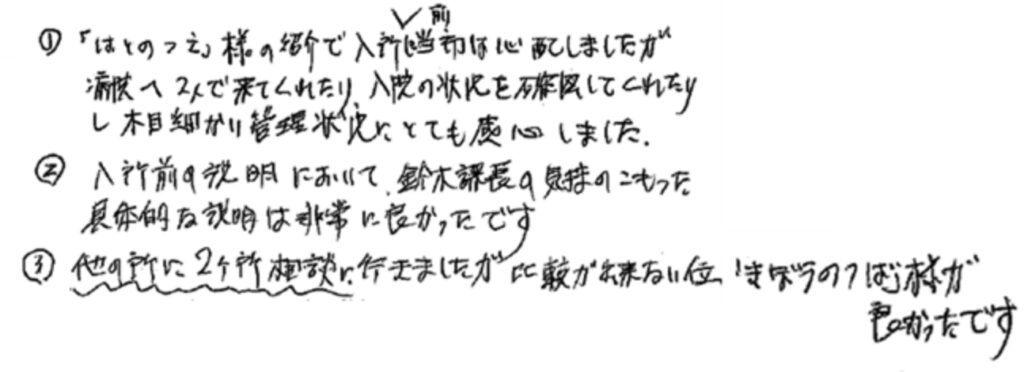 ① 「はとのつえ」様の紹介で入所前当初は心配しましたが
病院へ2人で来てくれたり、入院の状況を確認してくれたり
し木目細かい管理状況にとても感心しました.
② 入所前の説明において、鈴木課長の気持のこもった
具体的な説明は非常に良かったです
③ 他の所に2ヶ所相談に行きましたが比較が出来ない位、「きぼうのつばさ」様が
良かったです